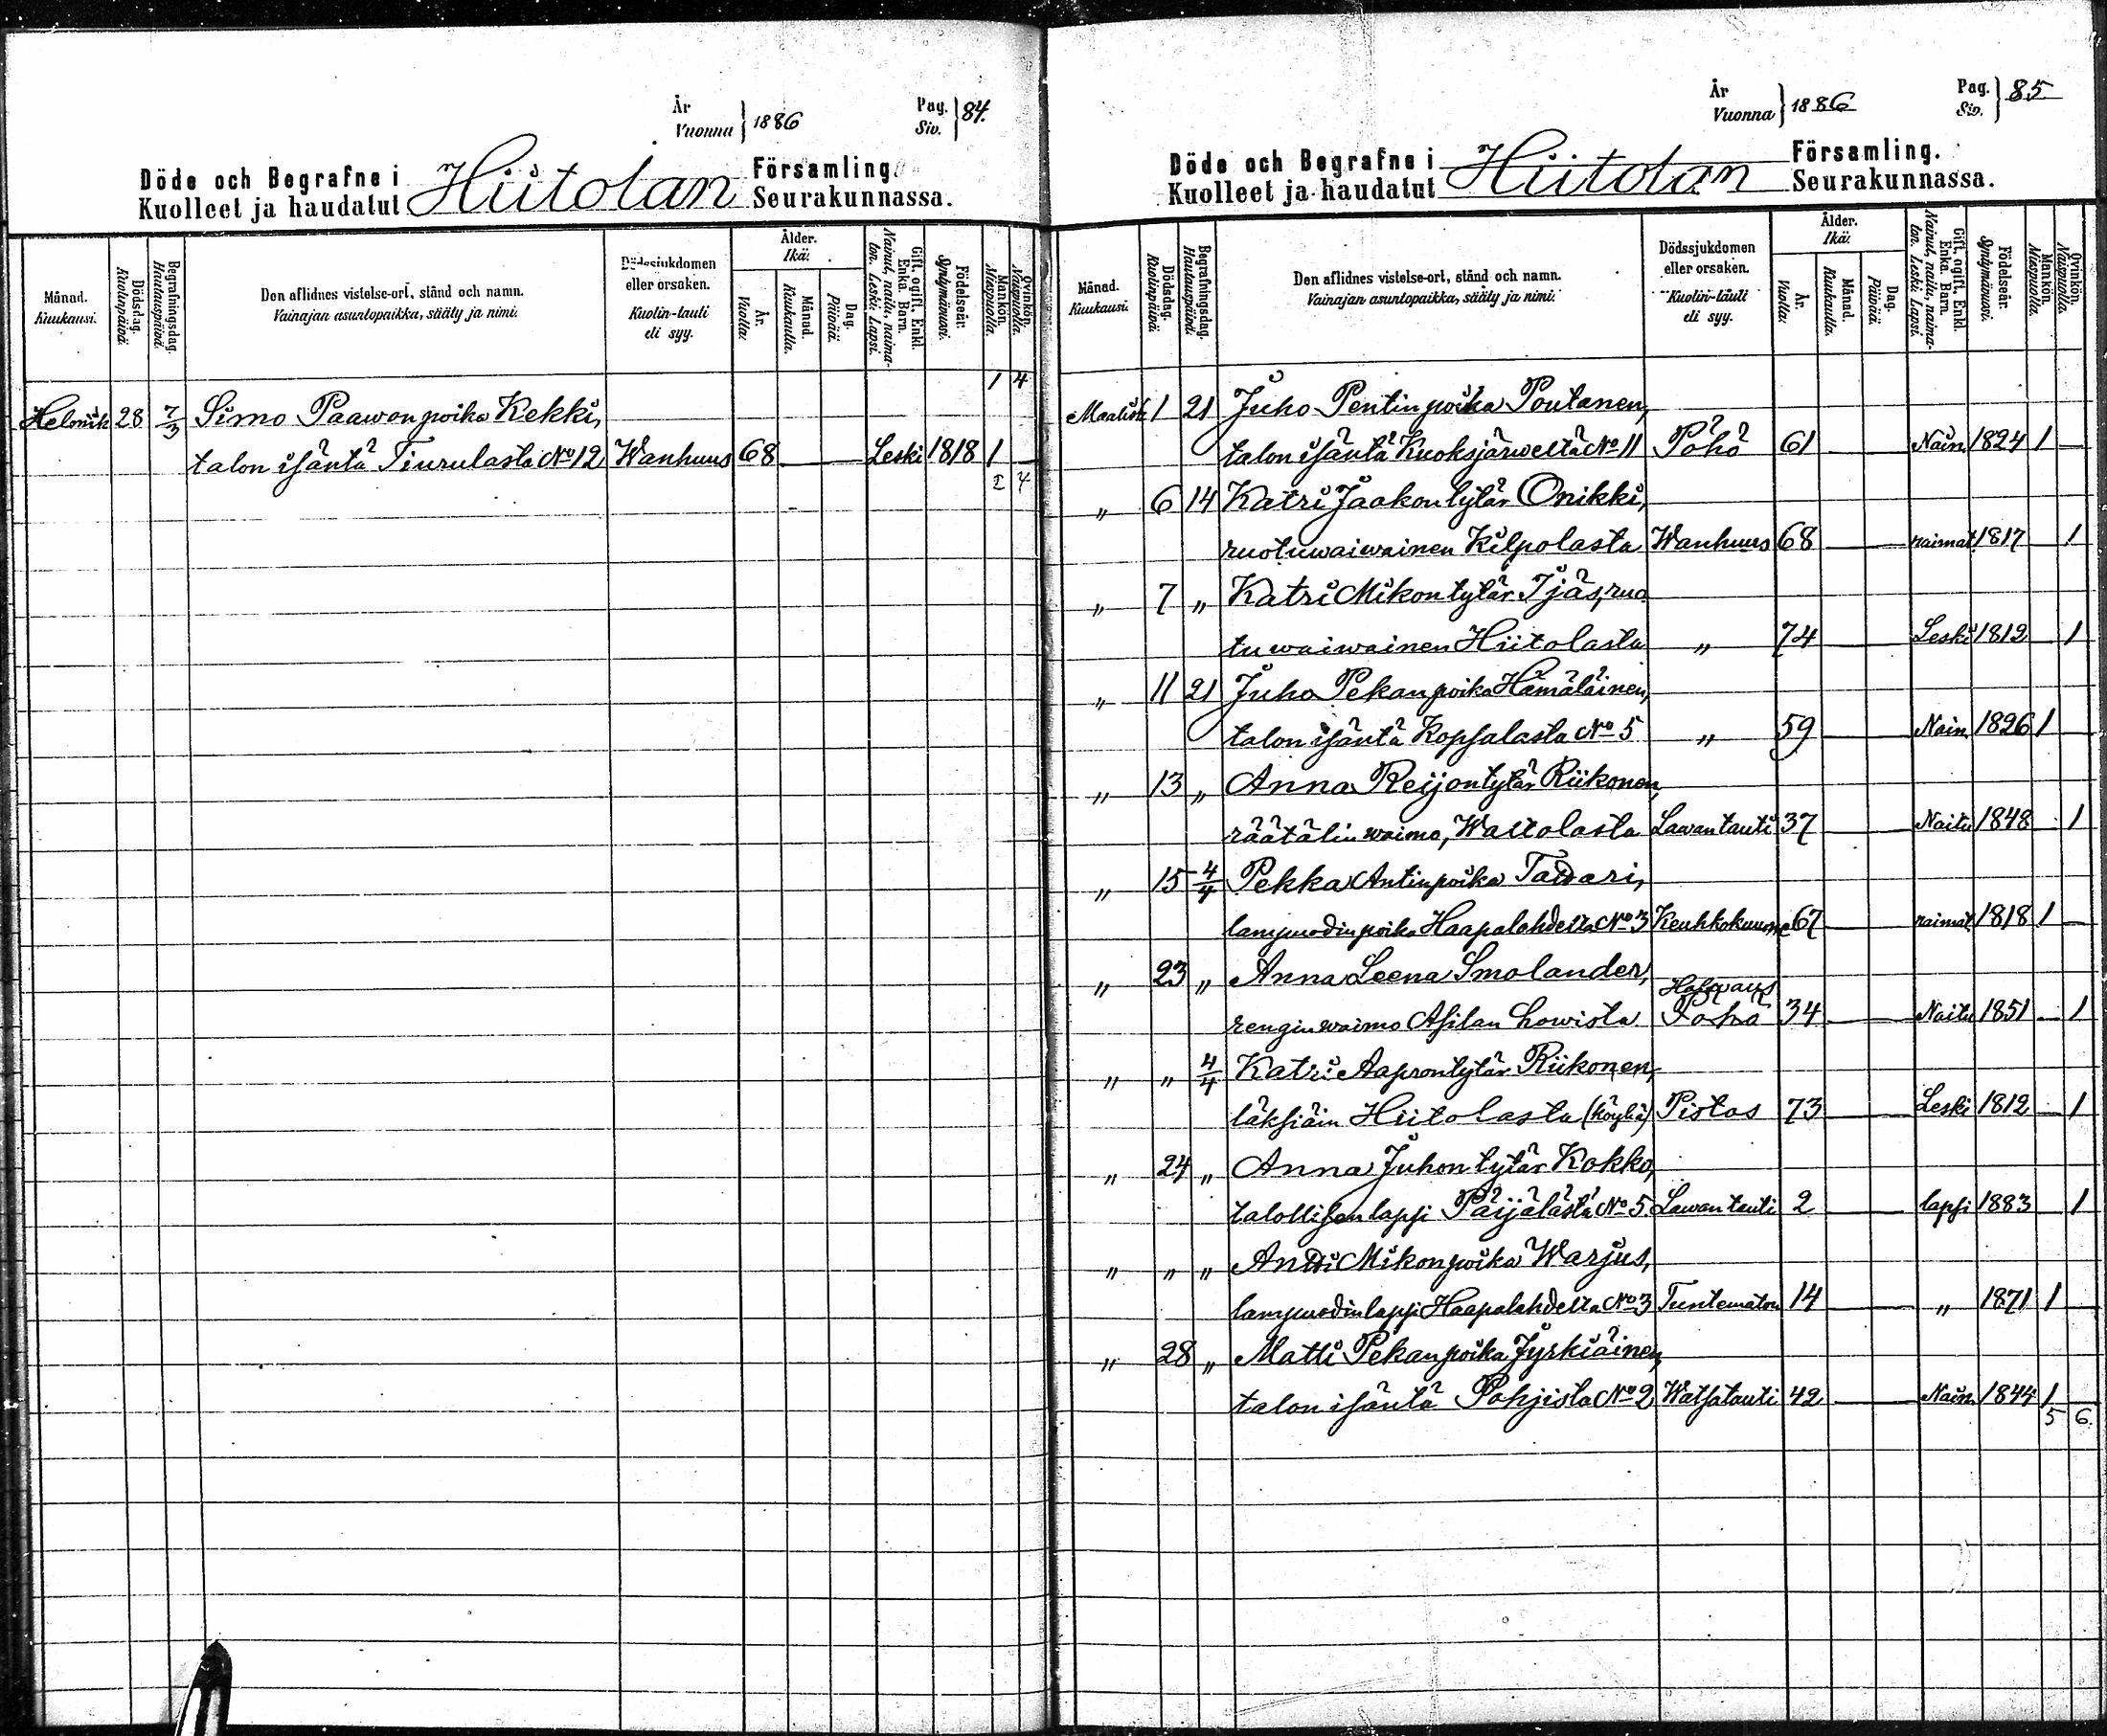 År
Vuonna } 1886
Pag.
Siv. } 84.
Döde och Begrafne i Hiitolan Församling.
Kuolleet ja haudatut Seurakunnassa.
Månad.
Kuukausi.
Dödsdag.
Kuolinpäivä.
Begrafningsdag.
Hautauspäivä.
Den aflidnes vistelse-ort, stånd och namn.
Vainajan asuntopaikka, sääty ja nimi.
Dödssjukdomen
eller orsaken.
Kuolin-tauti
eli syy.
Ålder.
Ikä.
År.
Vuotta.
Månad.
Kuukautta.
Dag.
Päivää.
Gift, ogift, Enkl.
Enka. Barn.
Nainut, naitu, naima-
ton. Leski. Lapsi.
Födelseår.
Syntymävuosi.
Mankön.
Miespuolia.
Qvinkön.
Naispuolia.
1 4
Helmik 28 7/3 Simo Paawon poika Kekki,
talon isäntä Tiurulasta No 12 Wanhuus 68 Leski 1818 1 —
2 4
År
Vuonna } 1886
Pag.
Siv. } 85
Döde och Begrafne i Hiitolan Församling.
Kuolleet ja haudatut Seurakunnassa.
Månad.
Kuukausi.
Dödsdag.
Kuolinpäivä.
Begrafningsdag.
Hautauspäivä.
Den aflidnes vistelse-ort, stånd och namn.
Vainajan asuntopaikka, sääty ja nimi.
Dödssjukdomen
eller orsaken.
Kuolin-tauti
eli syy.
Ålder.
Ikä.
År.
Vuotta.
Månad.
Kuukautta.
Dag.
Päivää.
Gift, ogift, Enkl.
Enka. Barn.
Nainut, naitu, naima-
ton. Leski. Lapsi.
Födelseår.
Syntymävuosi.
Mankön.
Miespuolia.
Qvinkön.
Naispuolia.
Maalisk 1 21 Juho Pentin poika Poutanen,
talon isäntä Kuoksjärweltä No 11 Pöhö 61 Nain. 1824 1 —
„ 6 14 Katri Jaakon tytär Onikki,
ruotuwaiwainen Kilpolasta Wanhuus 68 naimat. 1817 1
„ 7 „ Katri Mikon tytär Ijäs, ruo
tuwaiwainen Hiitolasta „ 74 Leski 1812 1
„ 11 21 Juho Pekan poika Hämäläinen,
talon isäntä Kopsalasta No 5 „ 59 Nain. 1826 1
„ 13 „ Anna Reijontytär Riikonen,
räätälin waimo, Waltolasta Lawantauti 37 Naitu 1848 1
„ 15 4/4 Pekka Antinpoika Tattari,
lampuodin poika Haapalahdelta No 3 Keuhkokuume 67 naimat. 1818 1 —
„ 23 „ Anna Leena Smolander,
Halwaus
rengin waimo Asilan howista Pöhö 34 Naitu 1851 — 1
„ „ 4/4 Katri Aaprontytär Riikonen,
läksiäin Hiitolasta (köyhä) Pistos 73 Leski 1812 — 1
„ 24 „ Anna Juhon tytär Kokko,
talollisen lapsi Päijälästä No 5. Lawantauti 2 lapsi 1883 1
„ „ „ Antti Mikonpoika Warjus,
lampuodin lapsi Haapalahdelta No 3 Tuntematon 14 „ 1871 1
„ 28 „ Matti Pekanpoika Jyrkiäinen,
talon isäntä Pohjista No 2 Watsatauti 42 Nain. 1844 1
5 6.